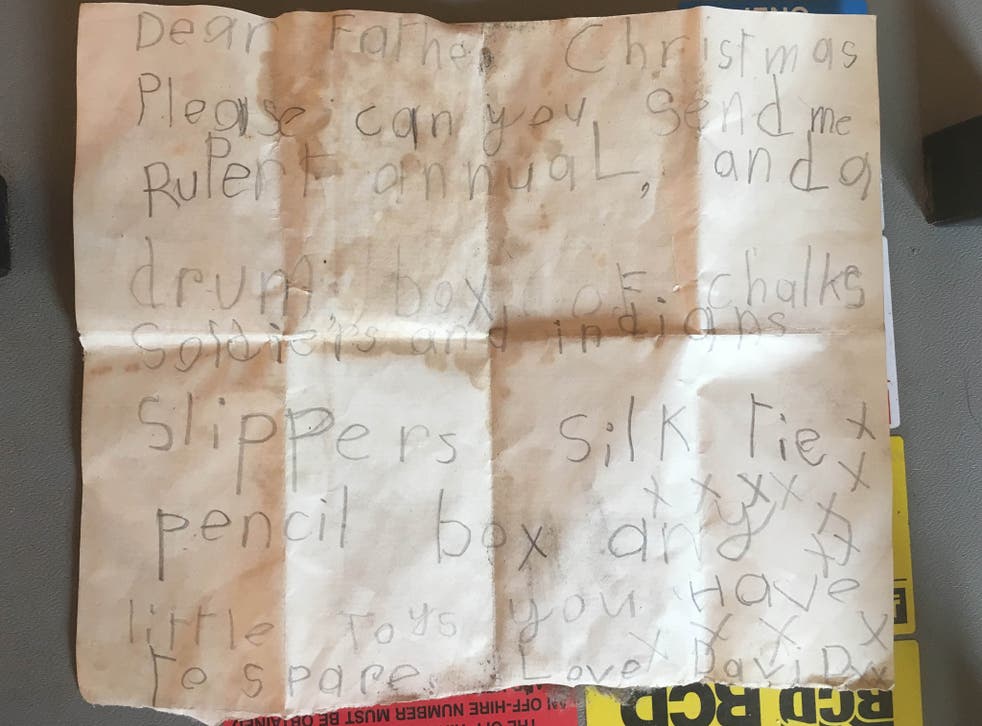 Dear Father Christmas
Please can you send me
Rupert annual, and a
drum, box, of chalks
Soldiers and indians
Slippers silk Tie x
x x x x x
pencil box any x
x x
little Toys you Have
x x x x
To spare. Love DaviD x x
OFF-HIRE NUMBER MUST BE OBTAINED
RCD RCD